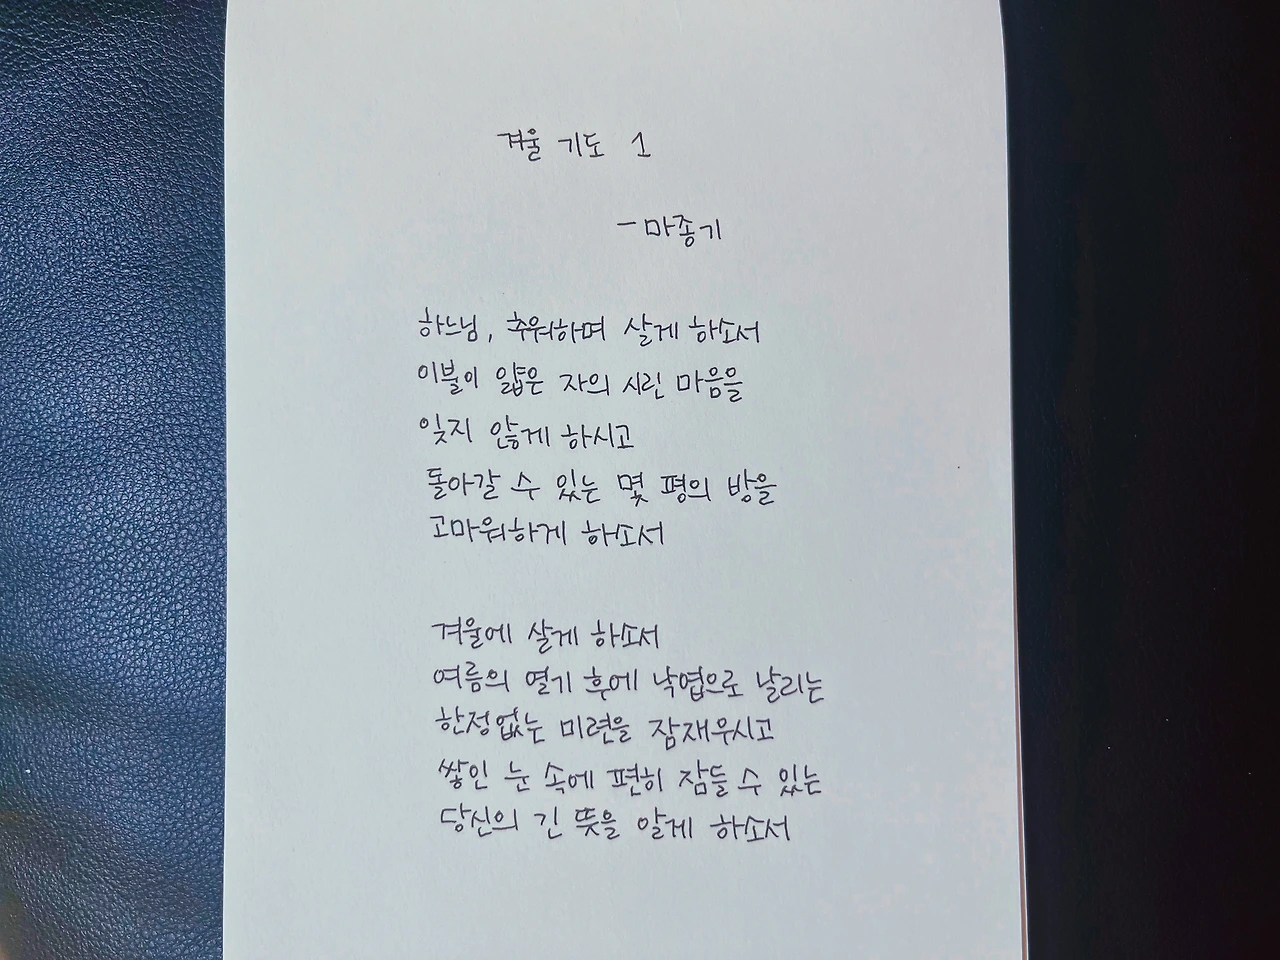 겨울 기도 1
- 마종기
하느님, 추워하며 살게 하소서
이불이 얇은 자의 시린 마음을
잊지 않게 하시고
돌아갈 수 있는 몇 평의 방을
고마워하게 하소서
겨울에 살게 하소서
여름의 열기 후에 낙엽으로 날리는
한정없는 미련을 잠재우시고
쌓인 눈 속에 편히 잠들 수 있는
당신의 긴 뜻을 알게 하소서